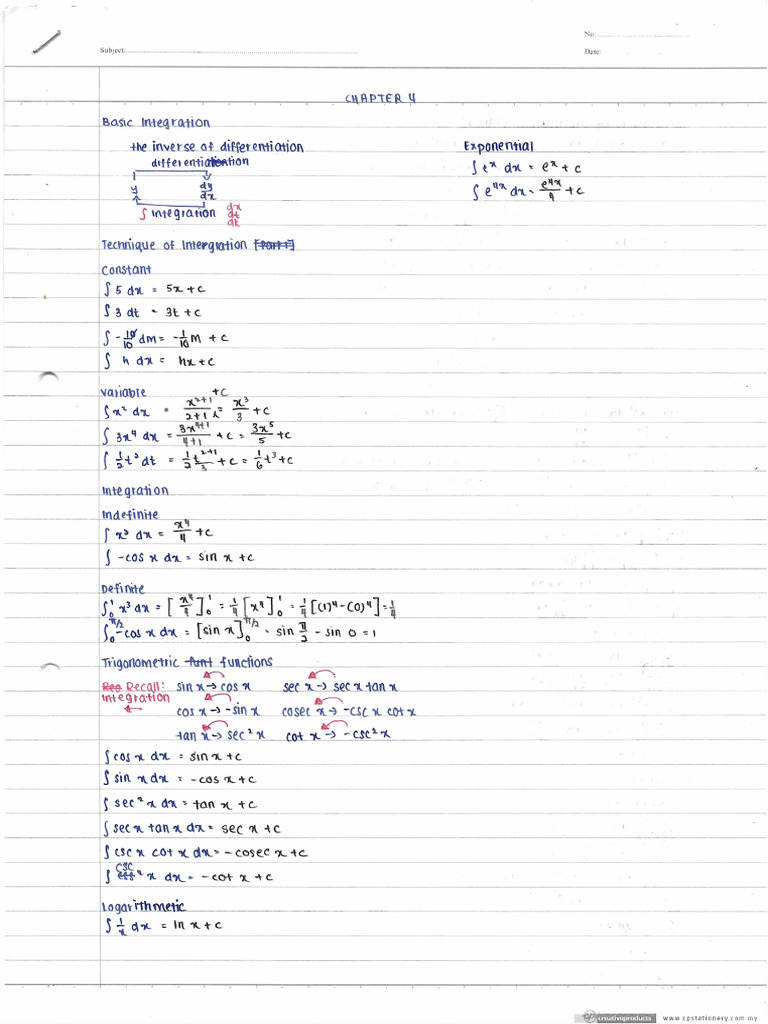 No:
Subject:
Date:
CHAPTER 4
Basic Integration
the inverse of differentiation
differentiation
y dy/dx
∫ integration dx
dt
dk
Exponential
∫ eˣ dx = eˣ + c
∫ e⁴ˣ dx = e⁴ˣ/4 + c
Technique of Intergration [Part 1]
Constant
∫ 5 dx = 5x + c
∫ 3 dt = 3t + c
∫ -10/10 dm = -1/10 m + c
∫ h dx = hx + c
Variable
∫ x² dx = x²⁺¹/2+1 + c = x³/3 + c
∫ 3x⁴ dx = 3x⁴⁺¹/4+1 + c = 3x⁵/5 + c
∫ 1/2 t² dt = 1/2 t²⁺¹/3 + c = 1/6 t³ + c
Integration
Indefinite
∫ x³ dx = x⁴/4 + c
∫ -cos x dx = sin x + c
Definite
∫₀¹ x³ dx = [x⁴/4]₀¹ = 1/4 [x⁴]₀¹ = 1/4 [(1)⁴-(0)⁴] = 1/4
∫₀^π/2 -cos x dx = [sin x]₀^π/2 = sin π/2 - sin 0 = 1
Trigonometric funt functions
Rea Recall: sin x → cos x sec x → sec x tan x
integration
cos x → -sin x cosec x → -csc x cot x
tan x → sec² x cot x → -csc² x
∫ cos x dx = sin x + c
∫ sin x dx = -cos x + c
∫ sec² x dx = tan x + c
∫ sec x tan x dx = sec x + c
∫ csc x cot x dx = -cosec x + c
∫ csc² x dx = -cot x + c
Logarithmetic
∫ 1/x dx = ln x + c
creativeproducts www.cpstationery.com.my